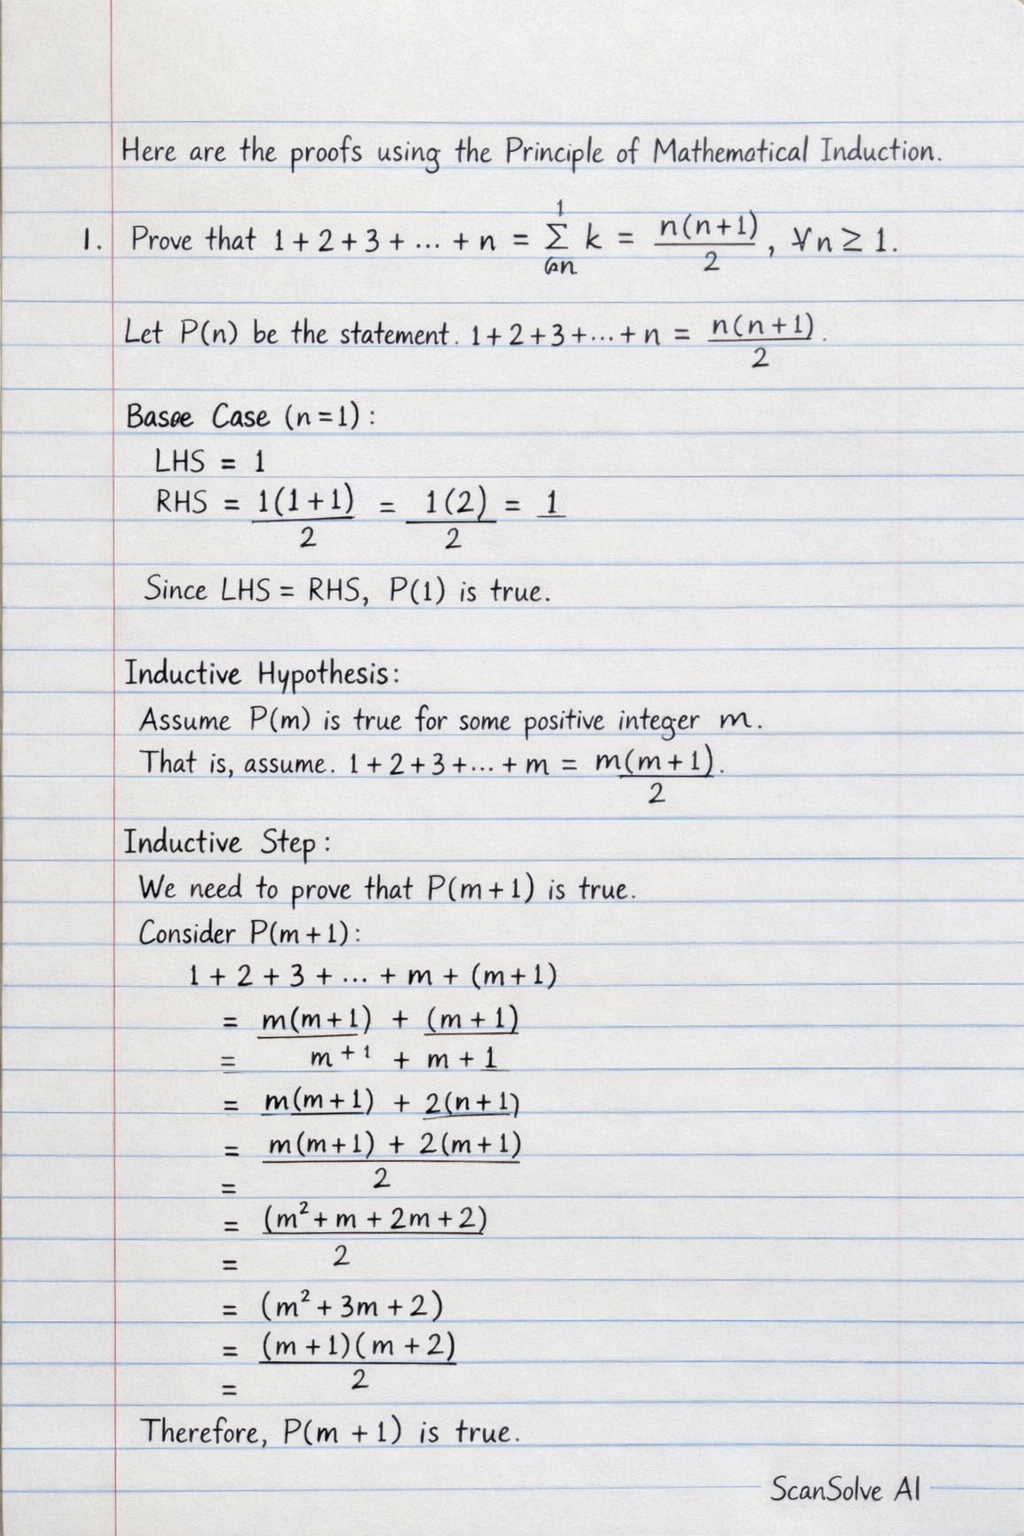 Here are the proofs using the Principle of Mathematical Induction.
1. Prove that 1 + 2 + 3 + ... + n = Σ k = n(n+1)/2, ∀n ≥ 1.
Let P(n) be the statement. 1 + 2 + 3 + ... + n = n(n+1)/2.
Base Case (n=1):
LHS = 1
RHS = 1(1+1)/2 = 1(2)/2 = 1
Since LHS = RHS, P(1) is true.
Inductive Hypothesis:
Assume P(m) is true for some positive integer m.
That is, assume. 1 + 2 + 3 + ... + m = m(m+1)/2.
Inductive Step:
We need to prove that P(m+1) is true.
Consider P(m+1):
1 + 2 + 3 + ... + m + (m+1)
= m(m+1) + (m+1)
= m+1 + m+1
= m(m+1) + 2(n+1)
= m(m+1) + 2(m+1)
= 2
= (m² + m + 2m + 2)
= 2
= (m² + 3m + 2)
= (m+1)(m+2)
= 2
Therefore, P(m+1) is true.
ScanSolve AI